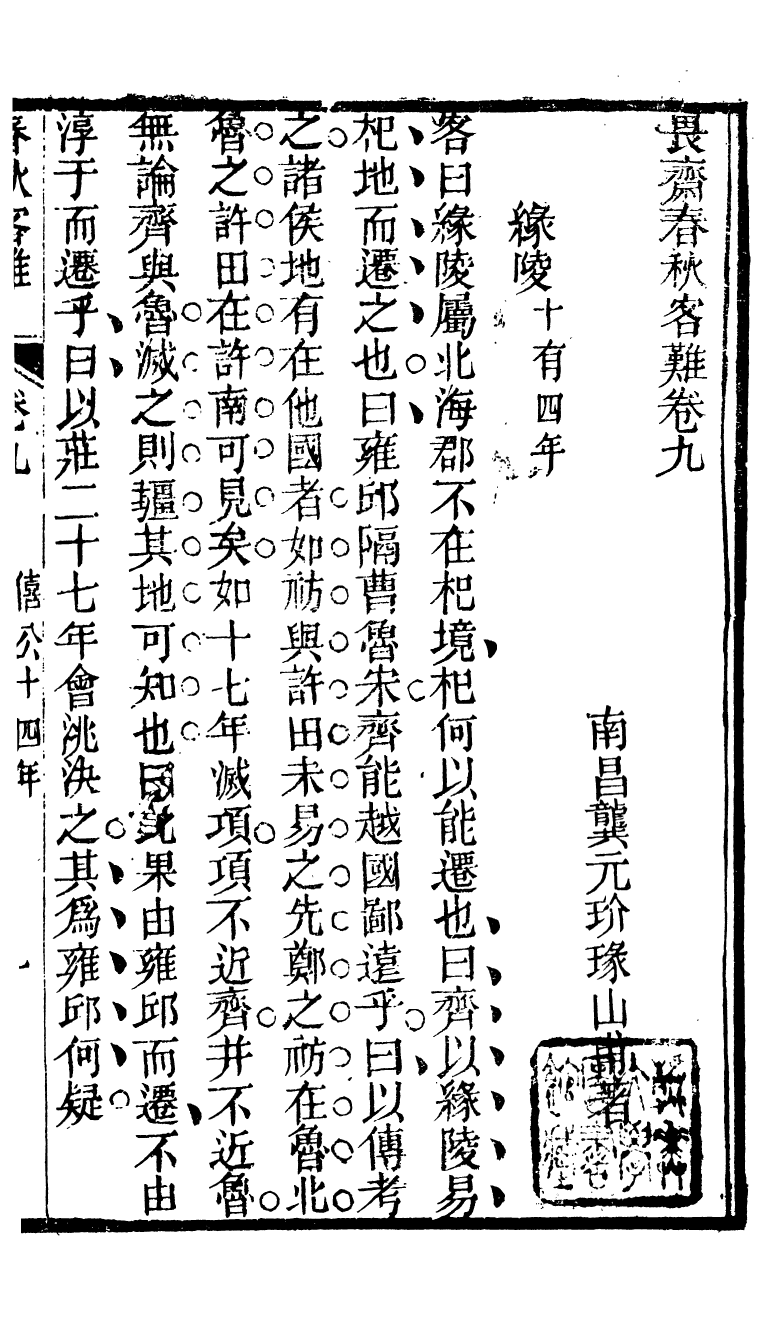 畏齋春秋客難卷九
南昌龔元玠瑑山甫著
緣陵十有四年
客曰緣陵屬北海郡不在杞境杞何以能遷也曰齊以緣陵易
杞地而遷之也曰雍邱隔曹魯宋齊能越國鄙遠乎曰以傳考
之諸侯地有在他國者如祊與許田未易之先鄭之祊在魯北
魯之許田在許南可見矣如十七年滅項項不近齊并不近魯
無論齊與魯滅之則疆其地可知也曰此果由雍邱而遷不由
淳于而遷乎曰以莊二十七年會洮決之其為雍邱何疑
春秋客難
卷九
僖公十四年